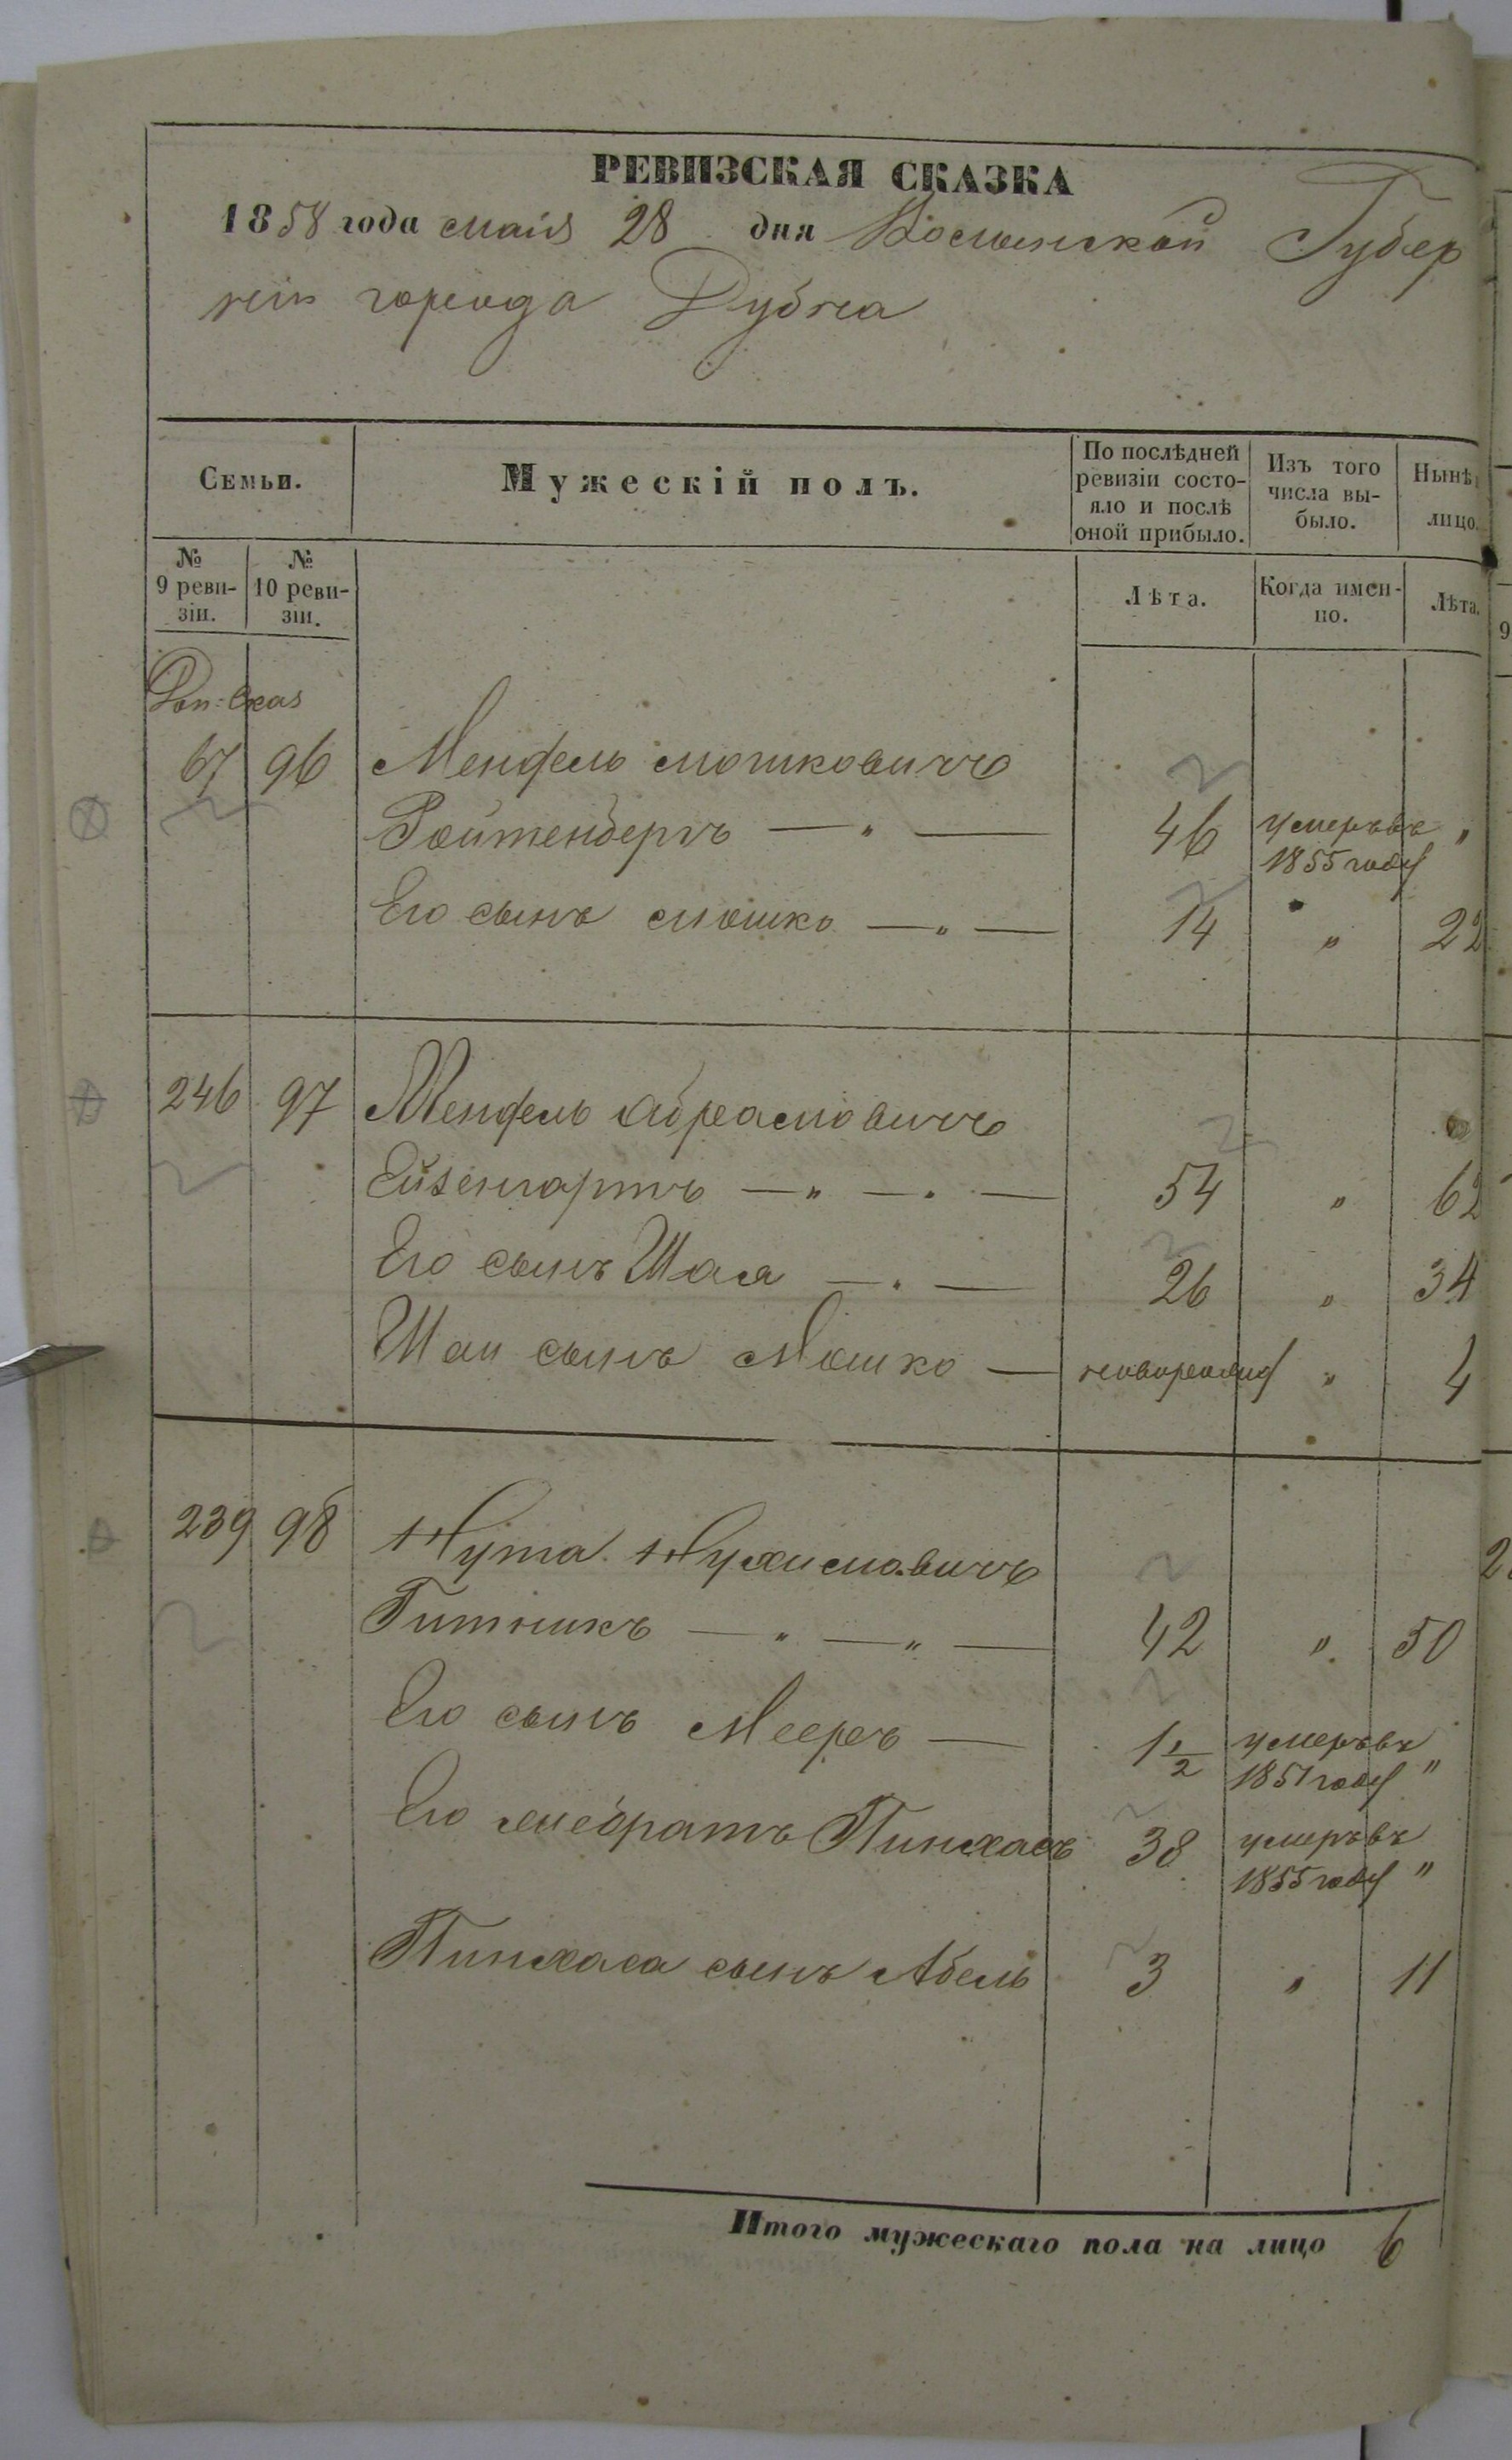 РЕВИЗСКАЯ СКАЗКА
1858 года маія 28 дня Волынской Губер
ніи города Дубна
Семьи.
Мужескій полъ.
По послѣдней ревизіи состо-
яло и послѣ
оной прибыло.
Изъ того
числа вы-
было.
Нынѣ
лицо.
№
9 реви-
зіи.
№
10 реви-
зіи.
Лѣта.
Когда имен-
но.
Лѣта.
67 96 Мендель Мошковичъ
Ройтенбергъ — " — 46 умеръ въ "
1855 году
Его сынъ Мошко — " — 14 " 22
246 97 Мендель Абрамовичъ
Ейзенгартъ — " — " — 54 " 62
Его сынъ Шая — " — 26 " 34
Шаи сынъ Мошко — новорожд " 4
239 98 Нута Нухимовичъ
Гитникъ — " — " — 42 " 50
Его сынъ Мееръ — 1 1/2 умеръ въ
1851 году "
Его же братъ Пинхасъ 38 умеръ въ
1855 году "
Пинхаса сынъ Абель 3 " 11
Итого мужескаго пола на лицо 6